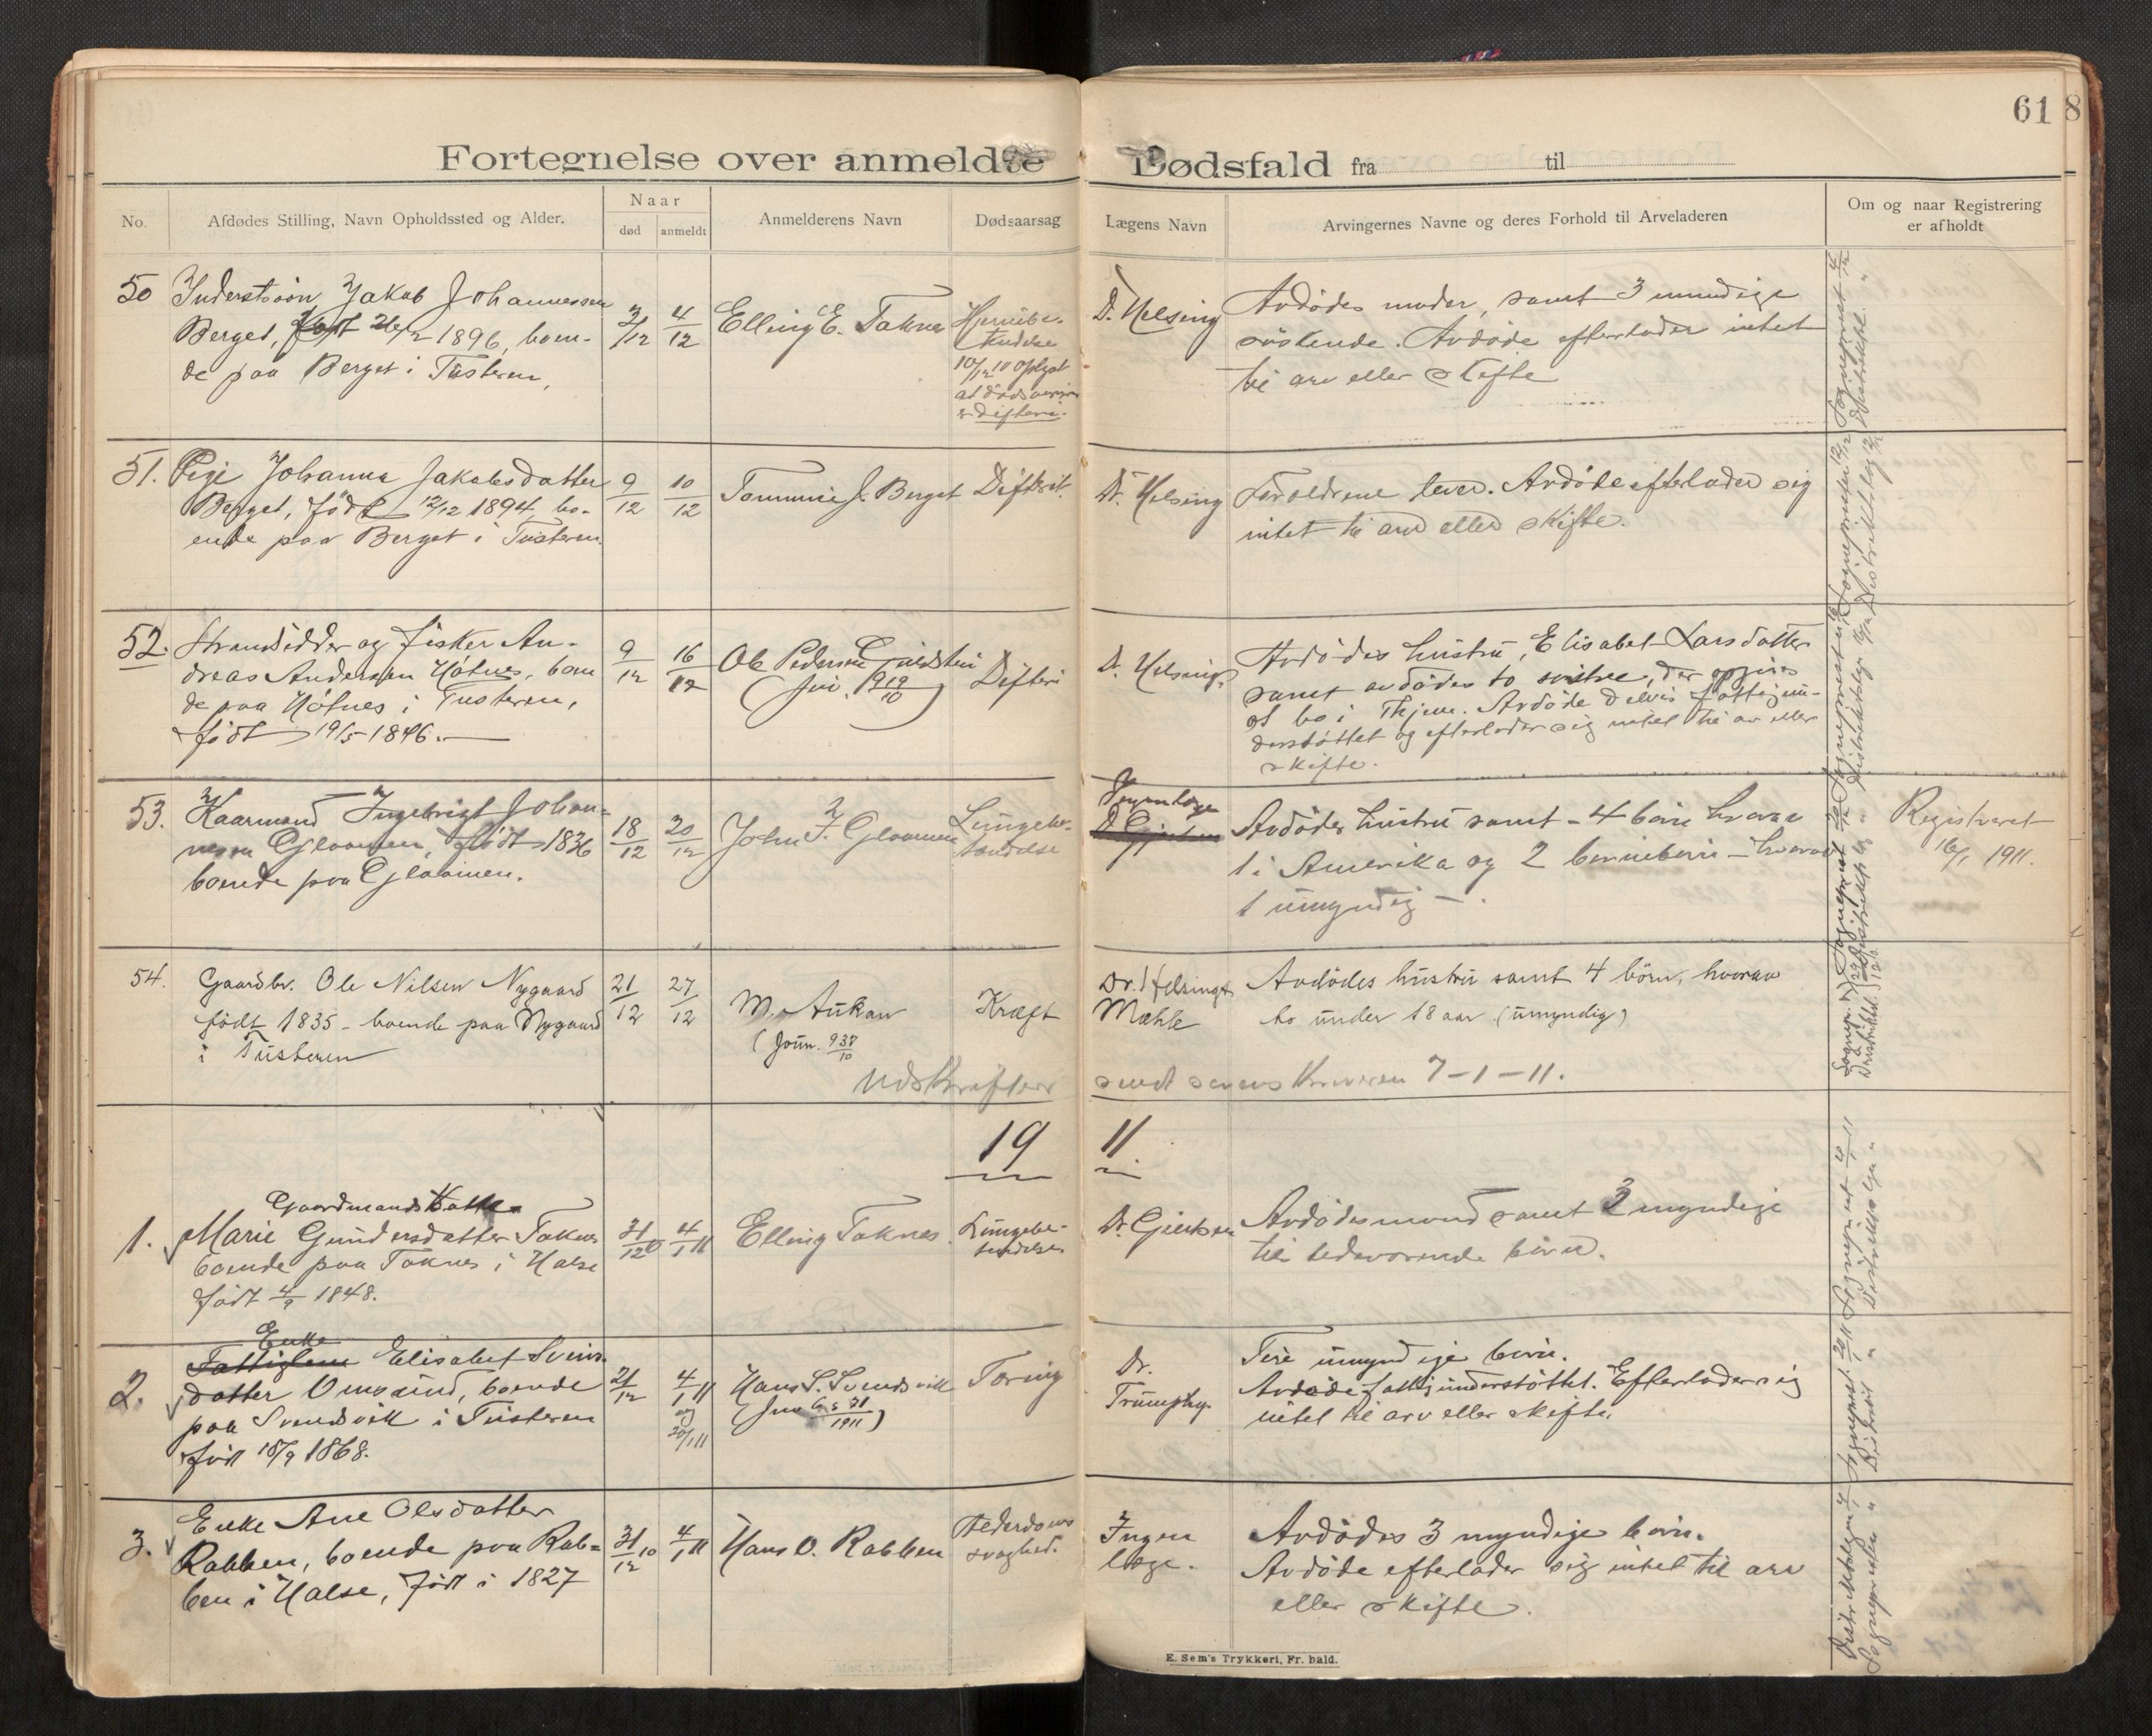 61
8
Fortegnelse over anmeldte Dødsfald fra til
No.
Afdødes Stilling, Navn Opholdssted og Alder.
Naar
død
anmeldt
Anmelderens Navn
Dødsaarsag
Lægens Navn
Arvingernes Navne og deres Forhold til Arveladeren
Om og naar Registrering
er afholdt
50
Inderstsøn Jakob Johannessen
Berget, født 1896, boen-
de paa Berget i Tusteren,
3/12
4/12
Elling E. Taknes
10/12 10 oplyst
at dødsaarsag
er difteri.
Dr. Helsing
Avdødes moder, samt 3 mundige
søskende. Avdøde efterlader intet
til arv eller skifte
51.
Pige Johanna Jakobsdatter
Berget, født 12/12 1894, bo-
ende paa Berget i Tusteren.
9/12
10/12
Tommine J. Berget
Difterit.
Dr. Helsing
Foreldrene lever. Avdøde efterlader sig
intet til arv eller skifte.
52.
Strandsidder og fisker An-
dreas Andersen Høtnes, boen
de paa Høtnes i Tusteren,
født 19/5 1846.
9/12
16/12
Ole Pedersen
Difteri
Dr. Helsing
Avdødes hustru, Elisabet Larsdatter
samt avdødes to søstre, der opgives
at bo i Thjem. Avdøde delvis fattigun-
derstøttet og efterlader sig intet til arv eller
skifte.
53.
Kaarmand Ingebrigt Johan-
nesen Gloamen, født 1836
boende paa Gloamen.
18/12
20/12
John I. Gloamen
Lungebe-
tændelse
Ingen læge
Avdødes hustru samt 4 børn hvorav
1 i Amerika og 2 børnebørn - hvorav
1 umyndig - .
Registreret
16/1 1911.
54.
Gaardbr. Ole Nilsen Nygaard
født 1835 - boende paa Nygaard
i Tusteren
21/12
27/12
M. Aukan
(Joun. 938/10
Kræft
Dr. Helsing
Mæhle
Avdødes hustru samt 4 børn, hvorav
to under 18 aar. (umyndig)
Udskrifter sendt sorenskriveren 7-1-11.
1911.
1.
Gaardmands
Marie Gundersdatter Taknes
boende paa Taknes i Halse
født 4/9 1848.
31/12 10
4/1 11
Elling Taknes.
Lungebe-
tændelse
Dr. Giertsen
Avdødes mand samt 3 myndige
tilstedeværende børn.
2.
Enke
Fattiglem Elisabet Svens-
datter Omsund, boende
paa Svendsvik i Tusteren
født 18/9 1868.
21/12
4/1 11
og
20/1 11
Hans S. Svendsvik
Tæring
Dr.
Trumphy.
Fire umyndige børn.
Avdøde fattigunderstøttet. Efterlader sig
intet til arv eller skifte.
3.
Enke Ane Olsdatter
Rabben, boende paa Rab-
ben i Halse, født i 1827
31/12 10
4/1 11
Hans O. Rabben
Alderdoms
svaghed.
Ingen
læge.
Avdødes 3 myndige børn.
Avdøde efterlader sig intet til arv
eller skifte.
E. Sem's Trykkeri, Fr.hald.